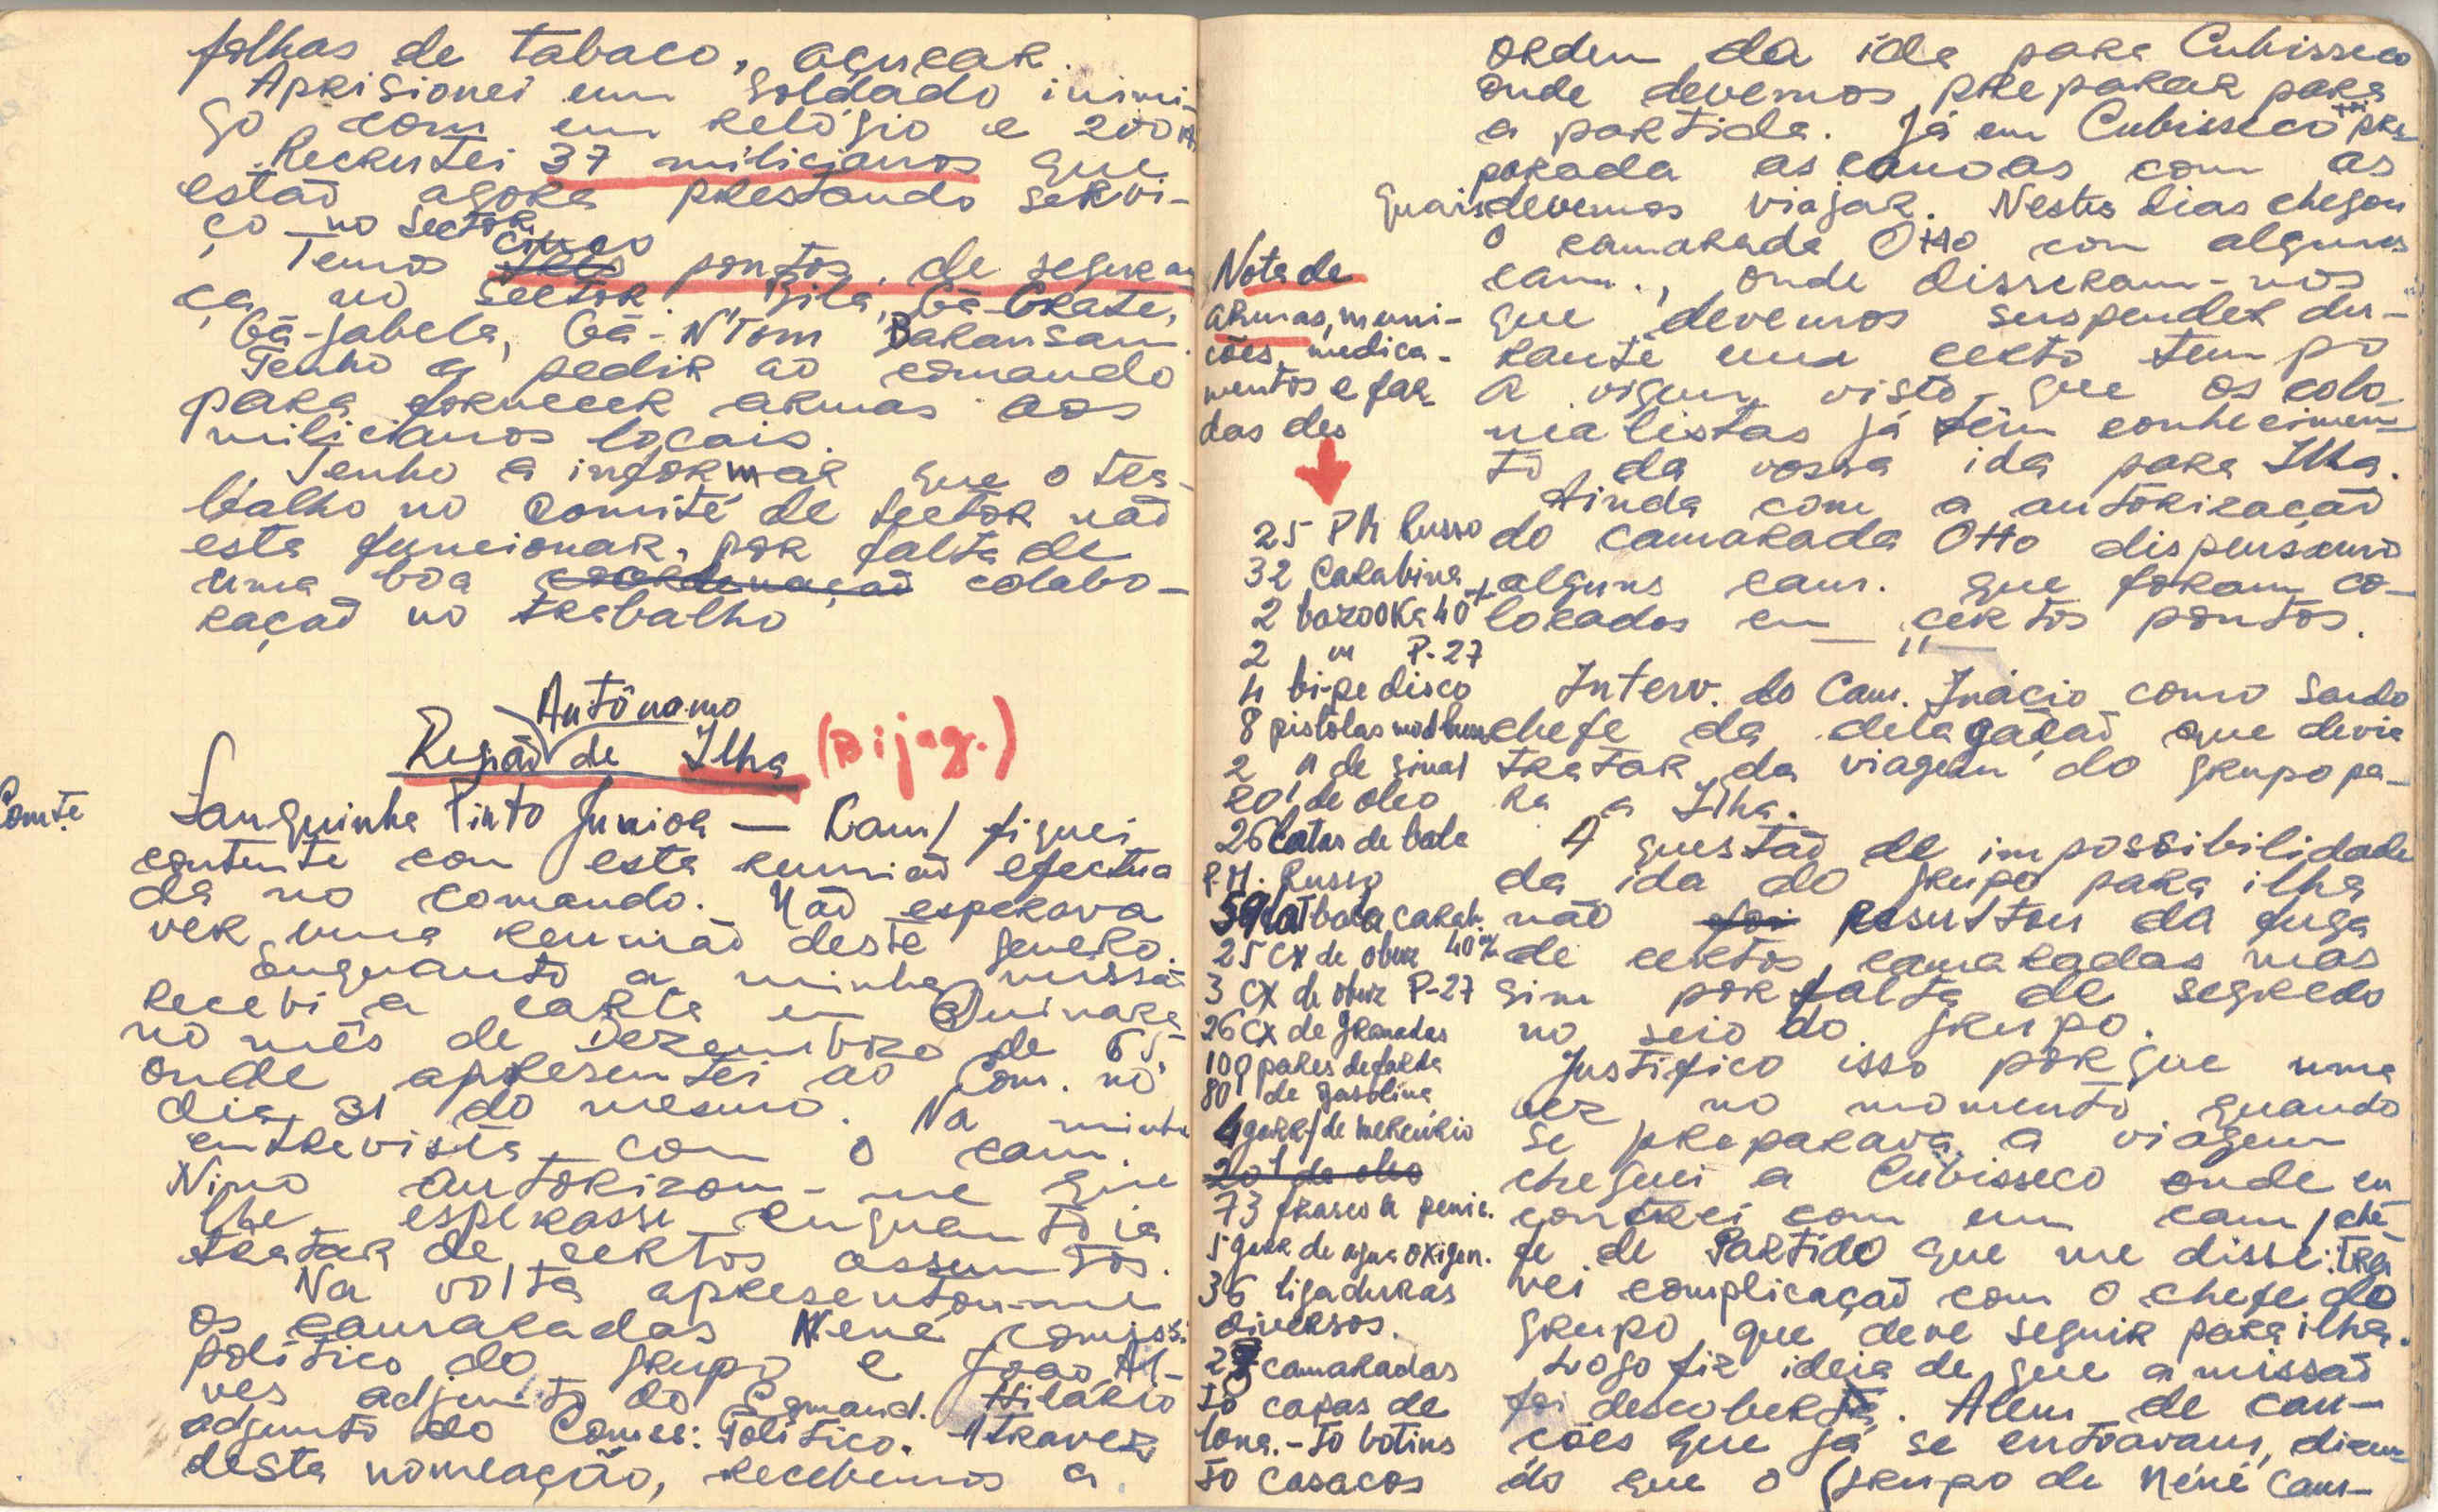 folhas de tabaco, açucar.
Aprisionei um soldado inimi-
go com um relógio e 200
Recrutei 37 milicianos que
estão agora prestando servi-
ço no Sector.
cinco
Temos pontos de seguran
ça no Sector. Bila, Gã-Grate,
Gã-Jabela, Gã-N'Tom Baransam.
Tenho a pedir ao comando
para fornecer armas aos
milicianos locais.
Tenho a informar que o tra-
balho no Comité de sector não
esta funcionar, por falta de
uma boa coordenação colabo-
ração no trabalho
Autônomo
Região de Ilha (Bijag.)
Comte Sanguinha Pinto Junior — Cam/ fiquei
contente com esta reunião efectua
da no comando. Não esperava
ver uma reunião deste genero.
Enquanto a minha missã
recebi a carta em Quinara
no mês de Dezembro de 65
onde apresentei ao Com. no
dia 31 do mesmo. Na minha
entrevista com o cam.
Nino autorizou-me que
lhe esperasse enquanto ia
tratar de certos assuntos.
Na volta apresentou-me
os camaradas Nené comiss.
político do grupo e João Al-
ves adjunto do Comand. Hilário
adjunto do Comiss. Político. Atravez
desta nomeação, recebemos a
Nota de
armas, muni-
cões, medica-
mentos e far-
das des
25 PM Russo
32 Carabina
2 bazooka 40
2 " P-27
4 bi-pe disco
8 pistolas
2 " de sinal
20 l de oleo
26 latas de bala
P.M. Russo
59 lat bala carab.
25 cx de obuz 40
3 cx de obuz P-27
26 cx de granadas
100 pares de farda
80 l de gasolina
4 garr/ de mercúrio
20 l de oleo
73 frasco a penic.
5 garr de agua oxigen.
36 ligaduras
diversos.
camaradas
10 capas de
lona. - 10 botins
10 casacos
ordem da ida para Cubisseco
onde devemos preparar para
a partida. Já em Cubisseco foi pre
parada as canoas com as
quais devemos viajar. Nestes dias chegou
o camarada Otto com alguns
cam., onde disseram-nos
que devemos suspender du-
rante um certo tempo
a vigem visto que os colo
nialistas já têm conhecimen-
to da vossa ida para Ilha.
Ainda com a autorização
do camarada Otto dispensamo
alguns cam. que foram co-
locados em certos pontos.
— " —
Interv. do Cam. Inácio como sendo
chefe da delagação que devia
tratar da viagem do grupo pa-
ra a Ilha.
A questão de impossibilidade
da ida do grupo para ilha
não foi resultou da fuga
de certos camaradas mas
sim por falta de segredo
no seio do grupo.
Justifico isso porque uma
vez no momento quando
se preparava a viagem
cheguei a Cubisseco onde en
contrei com um cam/ che
fe de Partido que me disse: tra
vei complicação com o chefe do
grupo que deve seguir para ilha.
Logo fiz ideia de que a missão
foi descoberta. Alem de can-
ções que já se entoavam, dizen-
do que o grupo de Néné Cam-